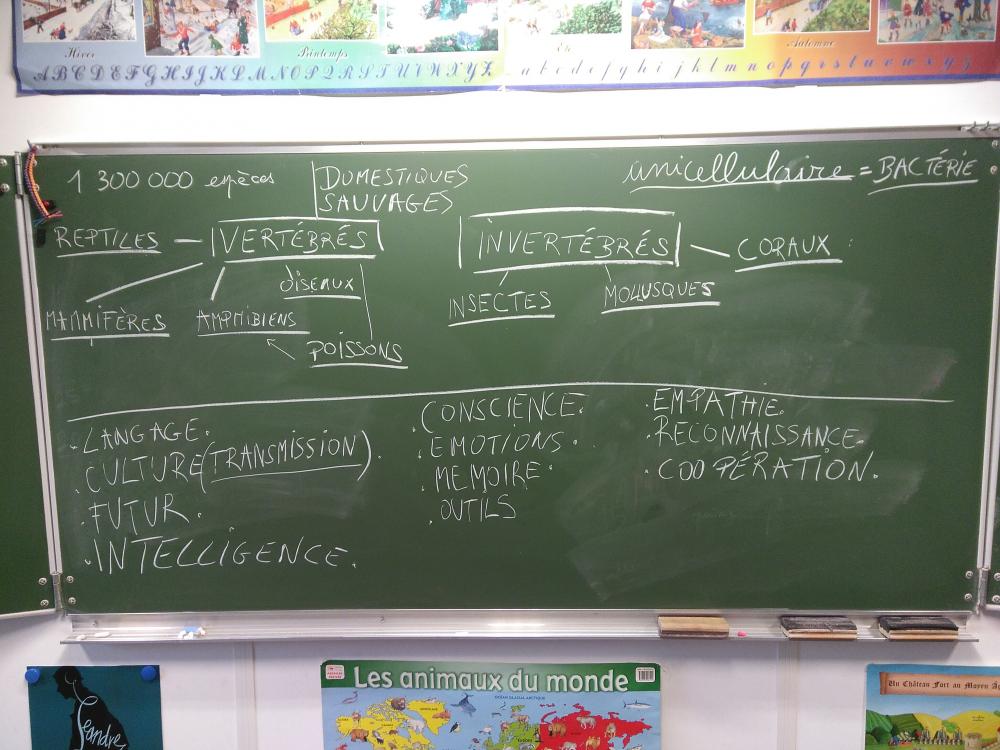 Hiver
Printemps
Eté
Automne
A B C D E F G H I J K L M N O P Q R S T U V W X Y Z
a b c d e f g h i j k l m n o p q r s t u v w x y z
1 300 000 espèces
DOMESTIQUES
SAUVAGES
unicellulaire = BACTÉRIE
REPTILES — VERTÉBRÉS
INVERTÉBRÉS — CORAUX
OISEAUX
INSECTES
MOLLUSQUES
MAMMIFÈRES
AMPHIBIENS
POISSONS
. LANGAGE.
. CULTURE (TRANSMISSION).
. FUTUR.
. INTELLIGENCE.
. CONSCIENCE.
. EMOTIONS.
. MEMOIRE.
. OUTILS
. EMPATHIE.
. RECONNAISSANCE.
. COOPÉRATION.
Les animaux du monde
OCÉAN GLACIAL ARCTIQUE
Un Château Fort au Moyen Â